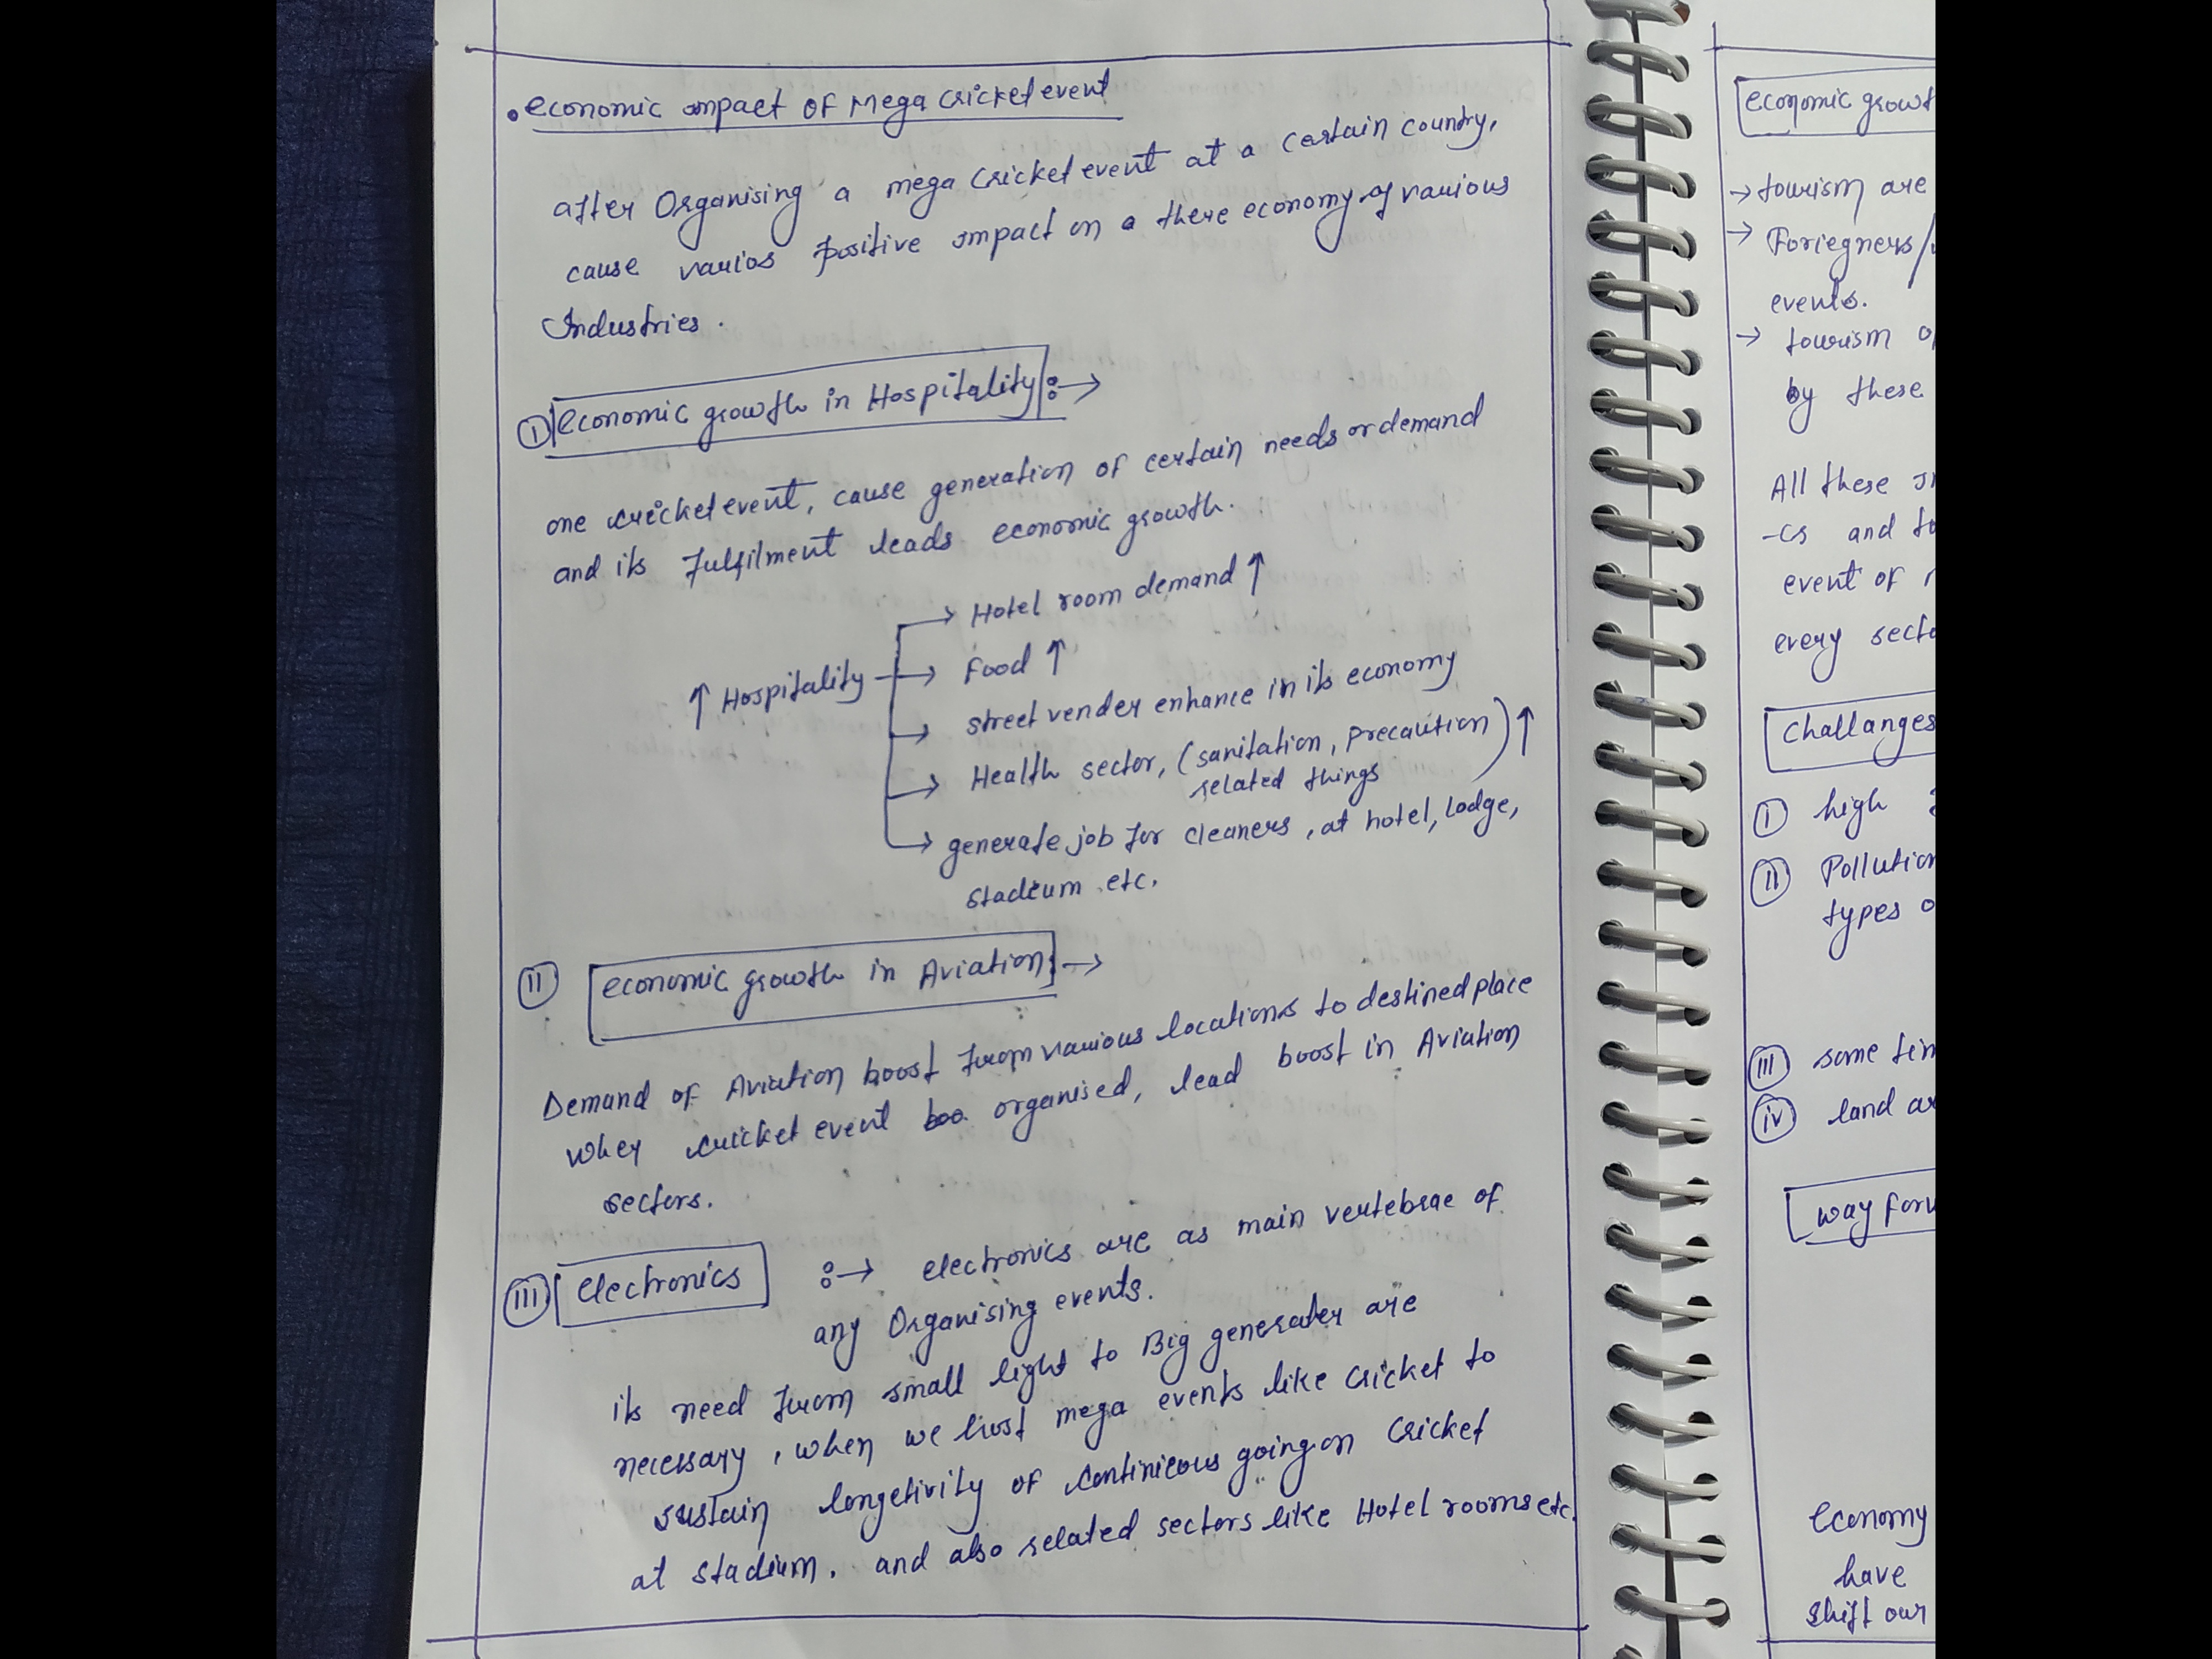 • economic impact of Mega cricket event
after Organising a mega cricket event at a certain country,
cause varios positive impact on a there economy of various
Industries.
① economic growth in Hospitality :→
one cricket event, cause generation of certain needs or demand
and its fulfilment leads economic growth.
→ Hotel room demand ↑
↑ Hospitality → Food ↑
→ street vender enhance in its economy
→ Health sector, (sanitation, precaution) ↑
related things
→ generate job for cleaners, at hotel, lodge,
stadium etc.
II economic growth in Aviation :→
Demand of Aviation boost from various locations to destined place
wher cricket event organised, lead boost in Aviation
sectors.
III electronics :→ electronics are as main vertebrae of
any Organising events.
its need from small light to Big generater are
necessary, when we host mega events like cricket to
sustain longetivity of continieous going on cricket
at stadium. and also related sectors like Hotel rooms etc.
economic growt
→ tourism are
→ Foriegners/
events.
→ tourism o
by these
All these
-cs and to
event of
every secto
Challanges
① high
II Pollution
types o
III some tim
iv land ar
way forw
economy
have
shift our